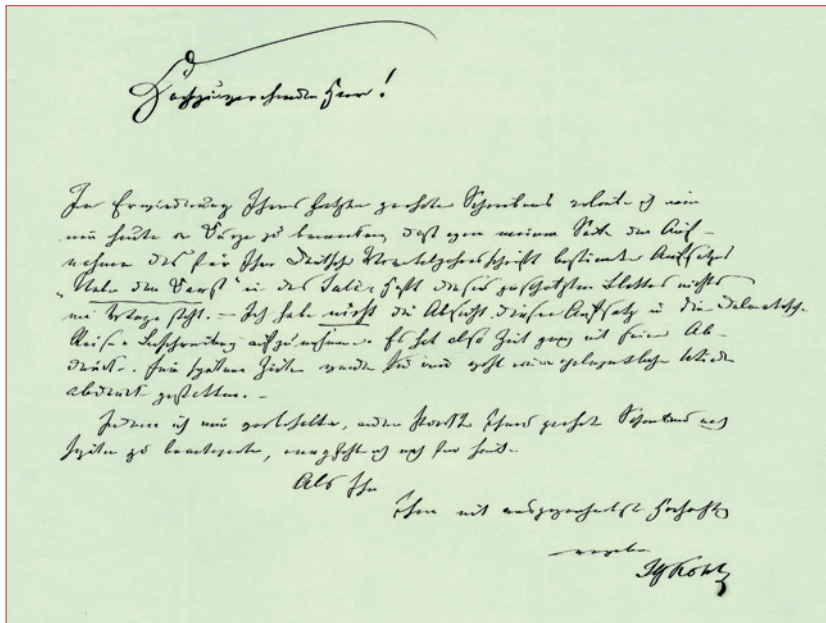 Hochzuverehrender Herr!
In Erwiederung Ihres letzten geehrten Schreibens erlaube ich mir
nur heute in Kürze zu bemerken, daß von meiner Seite der Auf-
nahme des für Ihre Deutsche Vierteljahrsschrift bestimmten Aufsatzes
"Ueber den Karst" in das Juli-Heft dieses geschätzten Blattes nichts
im Wege steht. – Ich habe nicht die Absicht diesen Aufsatz in die Dalmatische
Reise-Beschreibung aufzunehmen. Es hat also Zeit genug mit seinem Ab-
druck. Für spätere Zeiten werden Sie mir wohl eine gelegentliche Wieder-
abdruck gestatten. –
Indem ich mir vorbehalte, Ihres geehrte Schreiben noch
später zu beantworten, empfehle ich mich für heute
Als Ihr
Ihnen mit ausgezeichnetster Hochachtung
ergebener
JGKohl